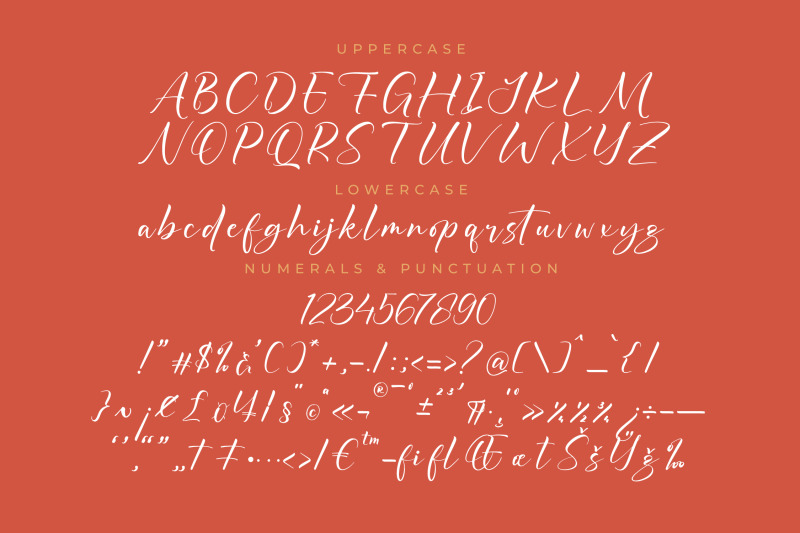 UPPERCASE
ABCDEFGHIJKLM
NOPQRSTUVWXYZ
LOWERCASE
abcdefghijklmnopqrstuvwxyz
NUMERALS & PUNCTUATION
1234567890
!"#$%&'()*+,-./:;<=>?@[\]^_`{|
}~¡¢£¤¥¦§¨©ª«¬®¯°±²³´¶·¸¹º»¼½¾¿÷–—
‘’‚“”„†‡•…‹›⁄€™−fiflŒœtŠšŸž‰